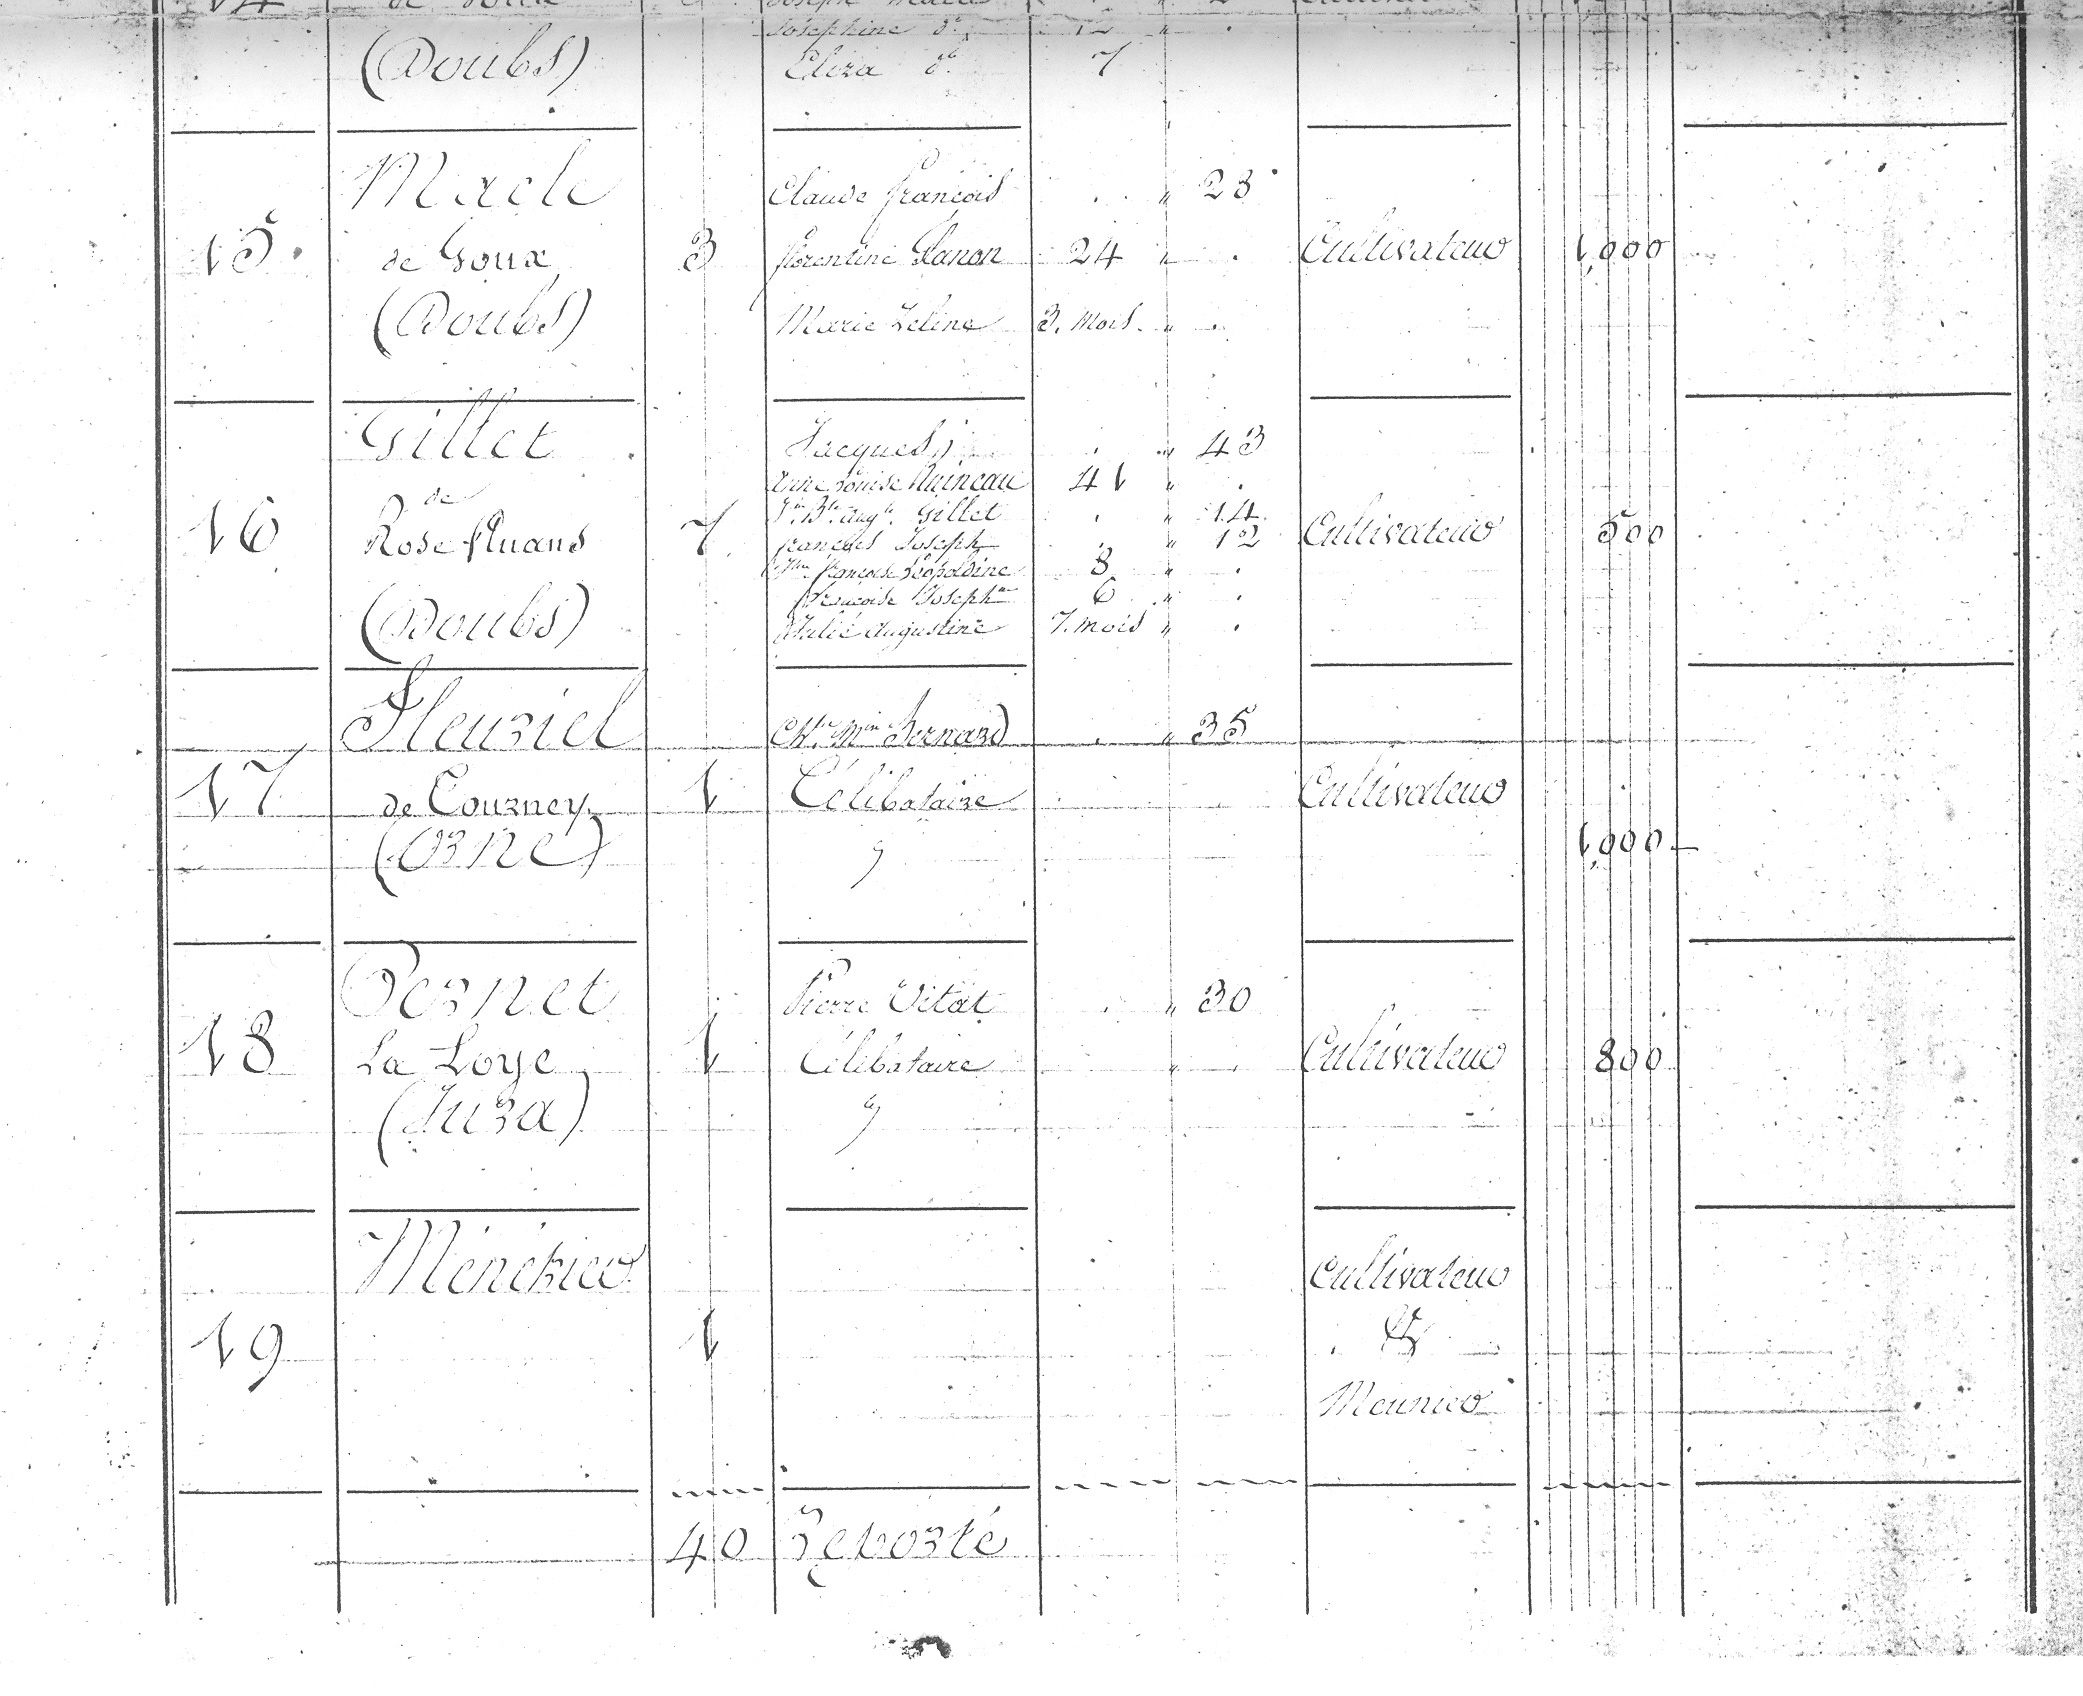 14 de Goux
Josephine do 12 "
(Doubs) Eliza do 7
Macle Claude françois " 23
15. de Goux 3 florentine Glanon 24 " Cultivateur 1,000
(Doubs) Marie Zeline 3. mois "
Gillet Jacques " 43
Anne Louise 41 "
de Jn. Bte. Augte. Gillet " 14
16 Rose fluans 7 françois Joseph " 12 Cultivateur 500
françoise Léopoldine 8 "
françoise Josephne 6 "
(Doubs) Julie Augustine 7. mois "
Fleuriel Bernard " 35
17 de Courney 1 Célibataire Cultivateur
(Orne) 1,000
Pernet Pierre Vital " 30
18 La Loye 1 Célibataire " Cultivateur 800
(Jura)
Ménétrier Cultivateur
19 1 &
Meunier
40 Reporté